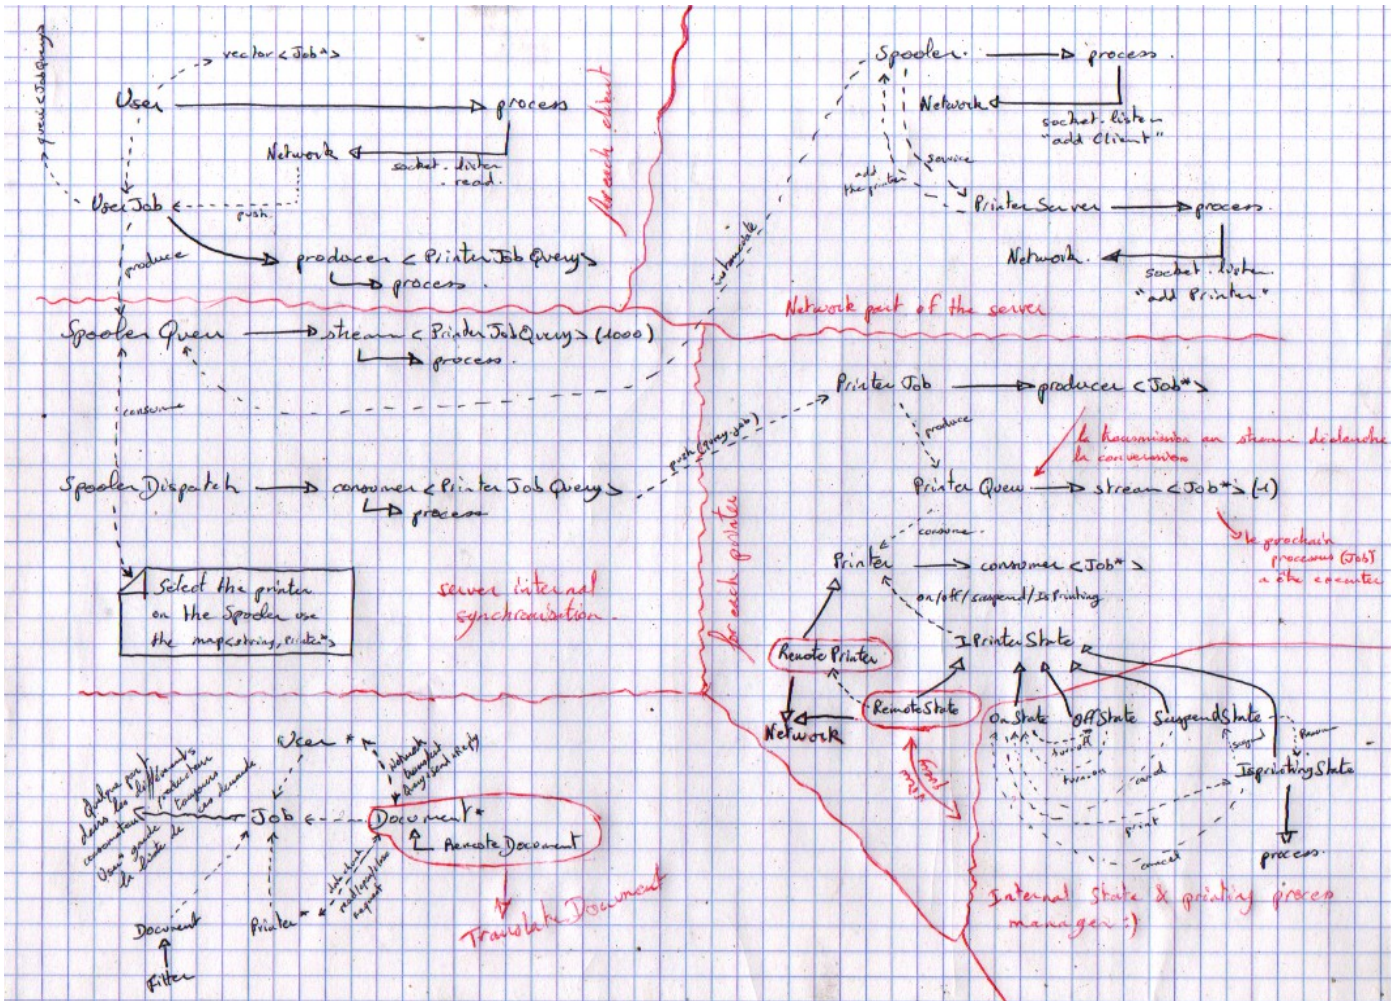 vector<Job*>
User
process
Network
socket.listen
. read.
for each client
UserJob
push
producer <PrinterJobQuery>
process.
produce
Spooler.
process.
Network
socket.listen
"add Client"
service
add
the printer
PrinterServer
process.
Network.
socket.listen.
"add Printer"
Network part of the server
Spooler Queu
stream <PrinterJobQuery> (1000)
process.
consume
Spooler Dispatch
consumer <PrinterJobQuery>
process
push(query.job)
Select the printer
on the Spooler use
the map<string, Printer*>
server internal
synchronisation.
for each printer
Printer Job
producer <Job*>
produce
la transmission au stream déclanche
la conversion
Printer Queu
stream <Job*> (1)
le prochain
processus (Job)
a être executer
consume.
Printer
consumer <Job*>
on/off/suspend/IsPrinting
IPrinterState
RemotePrinter
RemoteState
Network
OnState
OffState
SuspendState
turnoff
turn on
IsprintingState
print
cancel
process.
Internal State & printing process
manager :)
User *
Quelque part
dans les différents
producteur
consomateur
toujours
User* garde
la liste de
ces demande
Job
Document*
Remote Document
Translate Document
Document
Printer*
Filter